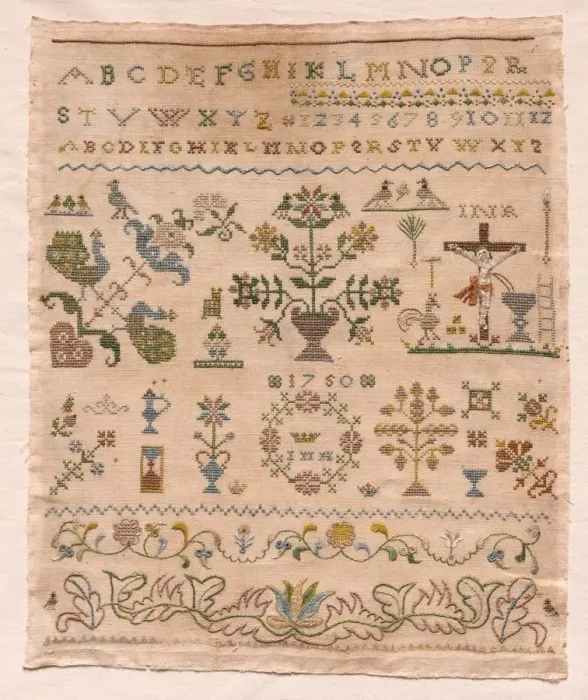 A B C D E F G H I K L M N O P Q R
S T V W X Y Z 1 2 3 4 5 6 7 8 9 10 11 12
A B C D E F G H I K L M N O P Q R S T V W X Y Z
INR
1750